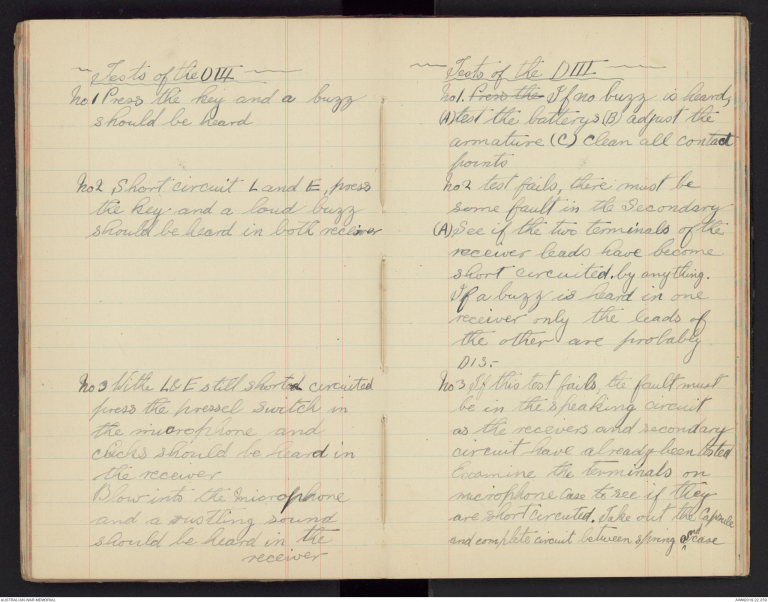 Tests of the D III
No 1 Press the key and a buzz
should be heard
No 2 Short circuit L and E, press
the key and a loud buzz
should be heard in both receiver
No 3 With L & E still shorted circuited
press the pressel switch in
the microphone and
clicks should be heard in
the receiver
Blow into the microphone
and a rustling sound
should be heard in the
receiver
Tests of the D III
No 1. Press the If no buzz is heard,
(A) test the batterys (B) adjust the
armature (C) clean all contact
points
No 2 test fails, there must be
some fault in the Secondary
(A) See if the two terminals of the
receiver leads have become
short circuited. by anything.
If a buzz is heard in one
receiver only the leads of
the other are probably
DIS-
No 3 If this test fails, the fault must
be in the speaking circuit
as the recevers and secondary
circuit have already been tested
Examine the terminals on
microphone case to see if they
are short circuted. Take out the Capsule
and complete circuit between spring and case
AUSTRALIAN WAR MEMORIAL